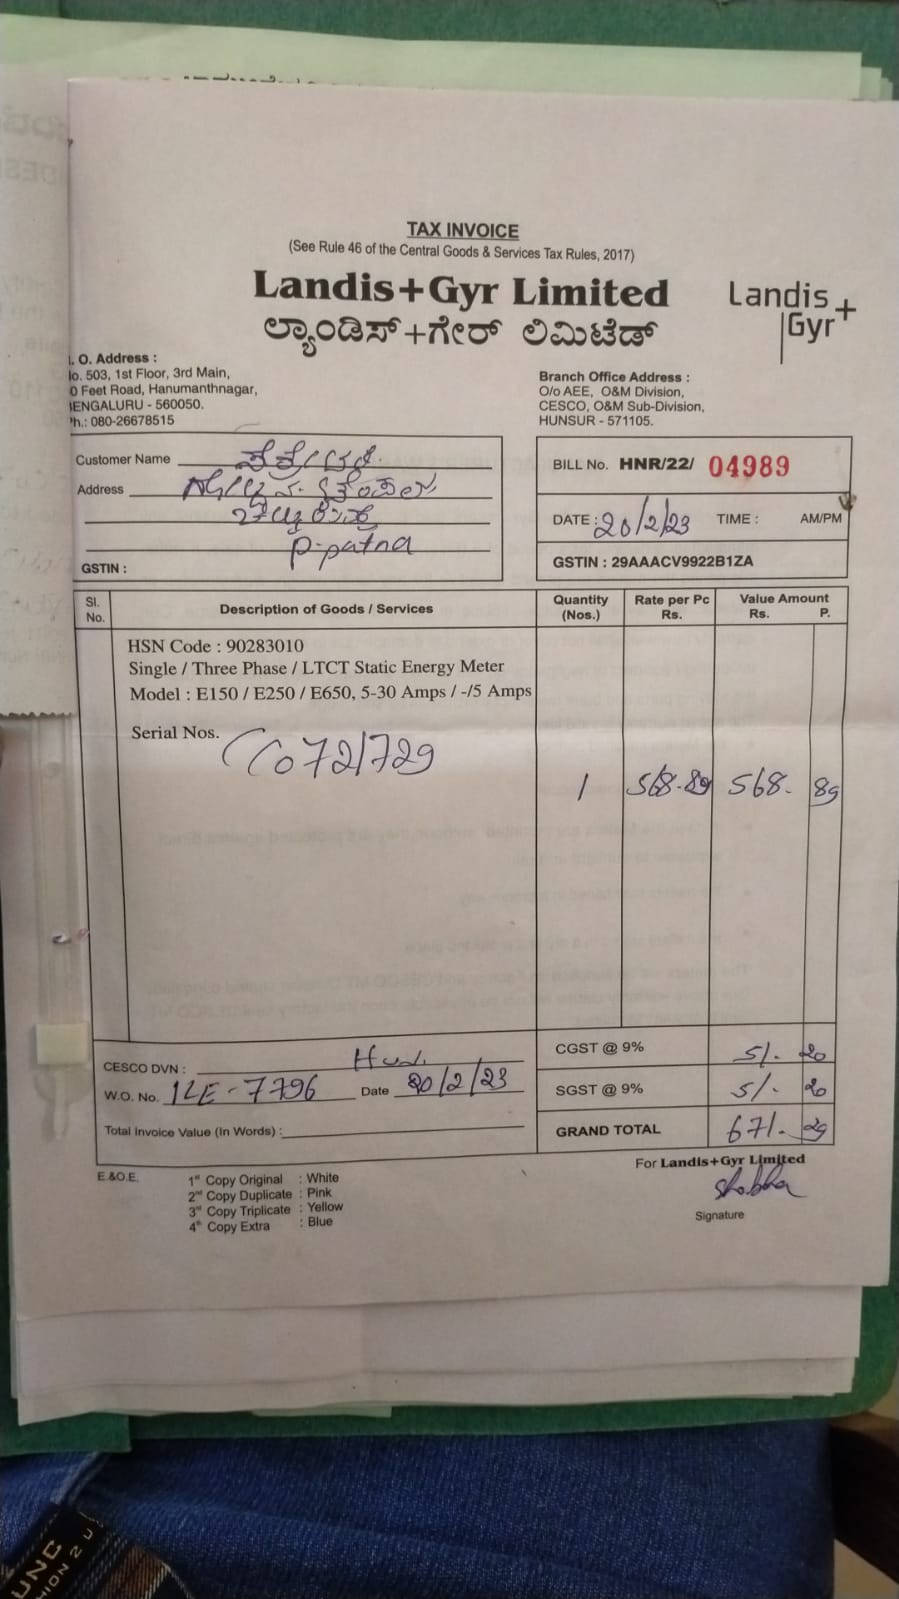 TAX INVOICE
(See Rule 46 of the Central Goods & Services Tax Rules, 2017)
Landis+Gyr Limited
ಲ್ಯಾಂಡಿಸ್+ಗೇರ್ ಲಿಮಿಟೆಡ್
Landis+
Gyr
. O. Address :
o. 503, 1st Floor, 3rd Main,
0 Feet Road, Hanumanthnagar,
ENGALURU - 560050.
h.: 080-26678515
Branch Office Address :
O/o AEE, O&M Division,
CESCO, O&M Sub-Division,
HUNSUR - 571105.
Customer Name
Address
P-patna
GSTIN :
BILL No. HNR/22/ 04989
DATE : 20/2/23 TIME : AM/PM
GSTIN : 29AAACV9922B1ZA
Sl. No. Description of Goods / Services Quantity (Nos.) Rate per Pc Rs. Value Amount Rs. P.
HSN Code : 90283010
Single / Three Phase / LTCT Static Energy Meter
Model : E150 / E250 / E650, 5-30 Amps / -/5 Amps
Serial Nos.
1 568.89 568. 89
CGST @ 9% 51. 20
SGST @ 9% 51. 20
GRAND TOTAL 671. 29
CESCO DVN : Hun.
W.O. No. ILE-7796 Date 20/2/23
Total Invoice Value (In Words) :
For Landis+Gyr Limited
Shobha
Signature
E.&O.E.
1st Copy Original : White
2nd Copy Duplicate : Pink
3rd Copy Triplicate : Yellow
4th Copy Extra : Blue